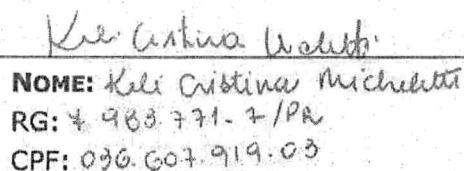 Keli Cristina
NOME: Keli Cristina Micheletti
RG: 7 983.771-7/PR
CPF: 036.607.919.03